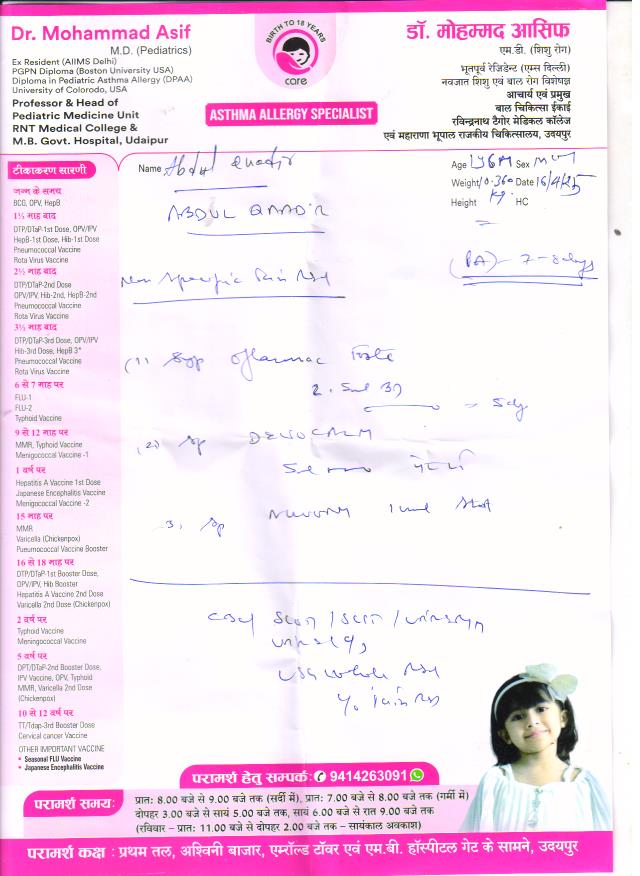 Dr. Mohammad Asif
M.D. (Pediatrics)
Ex Resident (AIIMS Delhi)
PGPN Diploma (Boston University USA)
Diploma in Pediatric Asthma Allergy (DPAA)
University of Colorodo, USA
Professor & Head of
Pediatric Medicine Unit
RNT Medical College &
M.B. Govt. Hospital, Udaipur
BIRTH TO 18 YEARS
care
ASTHMA ALLERGY SPECIALIST
डॉ. मोहम्मद आसिफ
एम.डी. (शिशु रोग)
भूतपूर्व रेजिडेन्ट (एम्स दिल्ली)
नवजात शिशु एवं बाल रोग विशेषज्ञ
आचार्य एवं प्रमुख
बाल चिकित्सा ईकाई
रविन्द्रनाथ टैगोर मेडिकल कॉलेज
एवं महाराणा भूपाल राजकीय चिकित्सालय, उदयपुर
Name Abdul Quadir
ABDUL QAADIR
Age 1y6M Sex
Weight 10.360 Date 16/4/25
Kg
Height HC
(PA) - 7-8 days
Non Specific
(1) Syp Forte
2.5ml
= 5dy
(2) Syp
5
3. Syp 1ml
CBC
USG whole
टीकाकरण सारणी
जन्म के समय
BCG, OPV, HepB
1½ माह बाद
DTP/DTaP-1st Dose, OPV/IPV
HepB-1st Dose, Hib-1st Dose
Pneumococcal Vaccine
Rota Virus Vaccine
2½ माह बाद
DTP/DTaP-2nd Dose
OPV/IPV, Hib-2nd, HepB-2nd
Pneumococcal Vaccine
Rota Virus Vaccine
3½ माह बाद
DTP/DTaP-3rd Dose, OPV/IPV
Hib-3rd Dose, HepB 3*
Pneumococcal Vaccine
Rota Virus Vaccine
6 से 7 माह पर
FLU-1
FLU-2
Typhoid Vaccine
9 से 12 माह पर
MMR, Typhoid Vaccine
Menigococcal Vaccine -1
1 वर्ष पर
Hepatitis A Vaccine 1st Dose
Japanese Encephalitis Vaccine
Menigococcal Vaccine -2
15 माह पर
MMR
Varicella (Chickenpox)
Pueumococcal Vaccine Booster
16 से 18 माह पर
DTP/DTaP-1st Booster Dose,
OPV/IPV, Hib Booster
Hepatitis A Vaccine 2nd Dose
Varicella 2nd Dose (Chickenpox)
2 वर्ष पर
Typhoid Vaccine
Meningococcal Vaccine
5 वर्ष पर
DPT/DTaP-2nd Booster Dose,
IPV Vaccine, OPV, Typhoid
MMR, Varicella 2nd Dose
(Chickenpox)
10 से 12 वर्ष पर
TT/Tdap-3rd Booster Dose
Cervical cancer Vaccine
OTHER IMPORTANT VACCINE
* Seasonal FLU Vaccine
* Japanese Encephilitis Vaccine
परामर्श हेतु सम्पर्क: 9414263091
परामर्श समय:
प्रातः 8.00 बजे से 9.00 बजे तक (सर्दी में), प्रातः 7.00 बजे से 8.00 बजे तक (गर्मी में)
दोपहर 3.00 बजे से सायं 5.00 बजे तक, सायं 6.00 बजे से रात 9.00 बजे तक
(रविवार - प्रातः 11.00 बजे से दोपहर 2.00 बजे तक - सायंकाल अवकाश)
परामर्श कक्ष : प्रथम तल, अश्विनी बाजार, एमरॉल्ड टॉवर एवं एम.बी. हॉस्पीटल गेट के सामने, उदयपुर